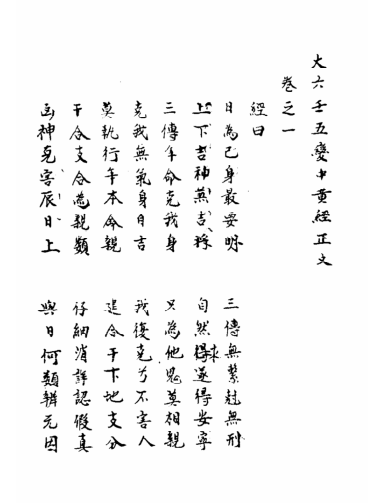 大六壬五變中黃經正文
卷之一
經曰
日為己身最要明 三傳無尅無刑
上下吉神無吉祿 自然求遂得安寧
三傳年命克我身 只為他鬼莫相親
克我無氣身自吉 我復克兮不害人
莫執行年本命親 追合干下地支分
干合支合為親類 仔細消詳認假真
凶神克害辰日上 與日何類辨元因